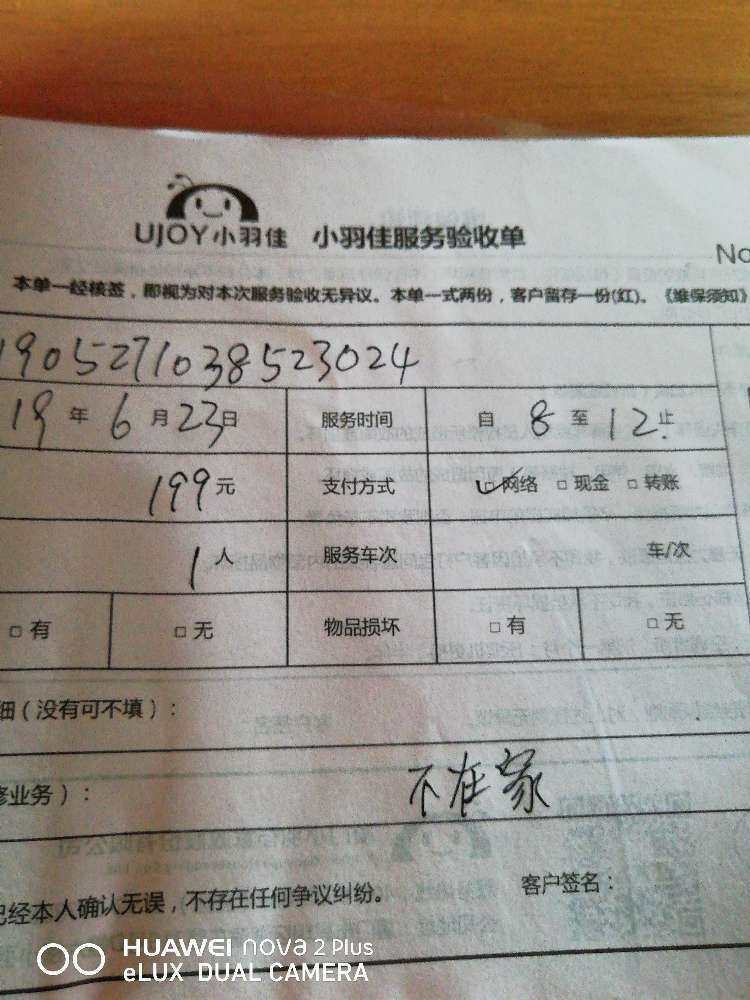 UJOY小羽佳 小羽佳服务验收单
No
本单一经核签，即视为对本次服务验收无异议。本单一式两份，客户留存一份(红)。《维保须知》
1905271038523024
19年6月23日 服务时间 自8至12止
199元 支付方式 网络 □现金 □转账
1人 服务车次 车/次
□有 □无 物品损坏 □有 □无
细（没有可不填）：
修业务）：
不在家
已经本人确认无误，不存在任何争议纠纷。 客户签名：
HUAWEI nova 2 Plus
eLUX DUAL CAMERA